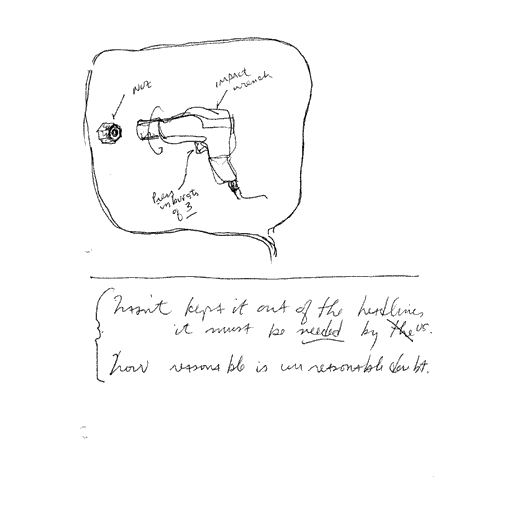 NUT
impact
wrench
Press
in bursts
of 3
hasn't kept it out of the headlines
it must be needed by the us.
how reasonable is un reasonable doubt.